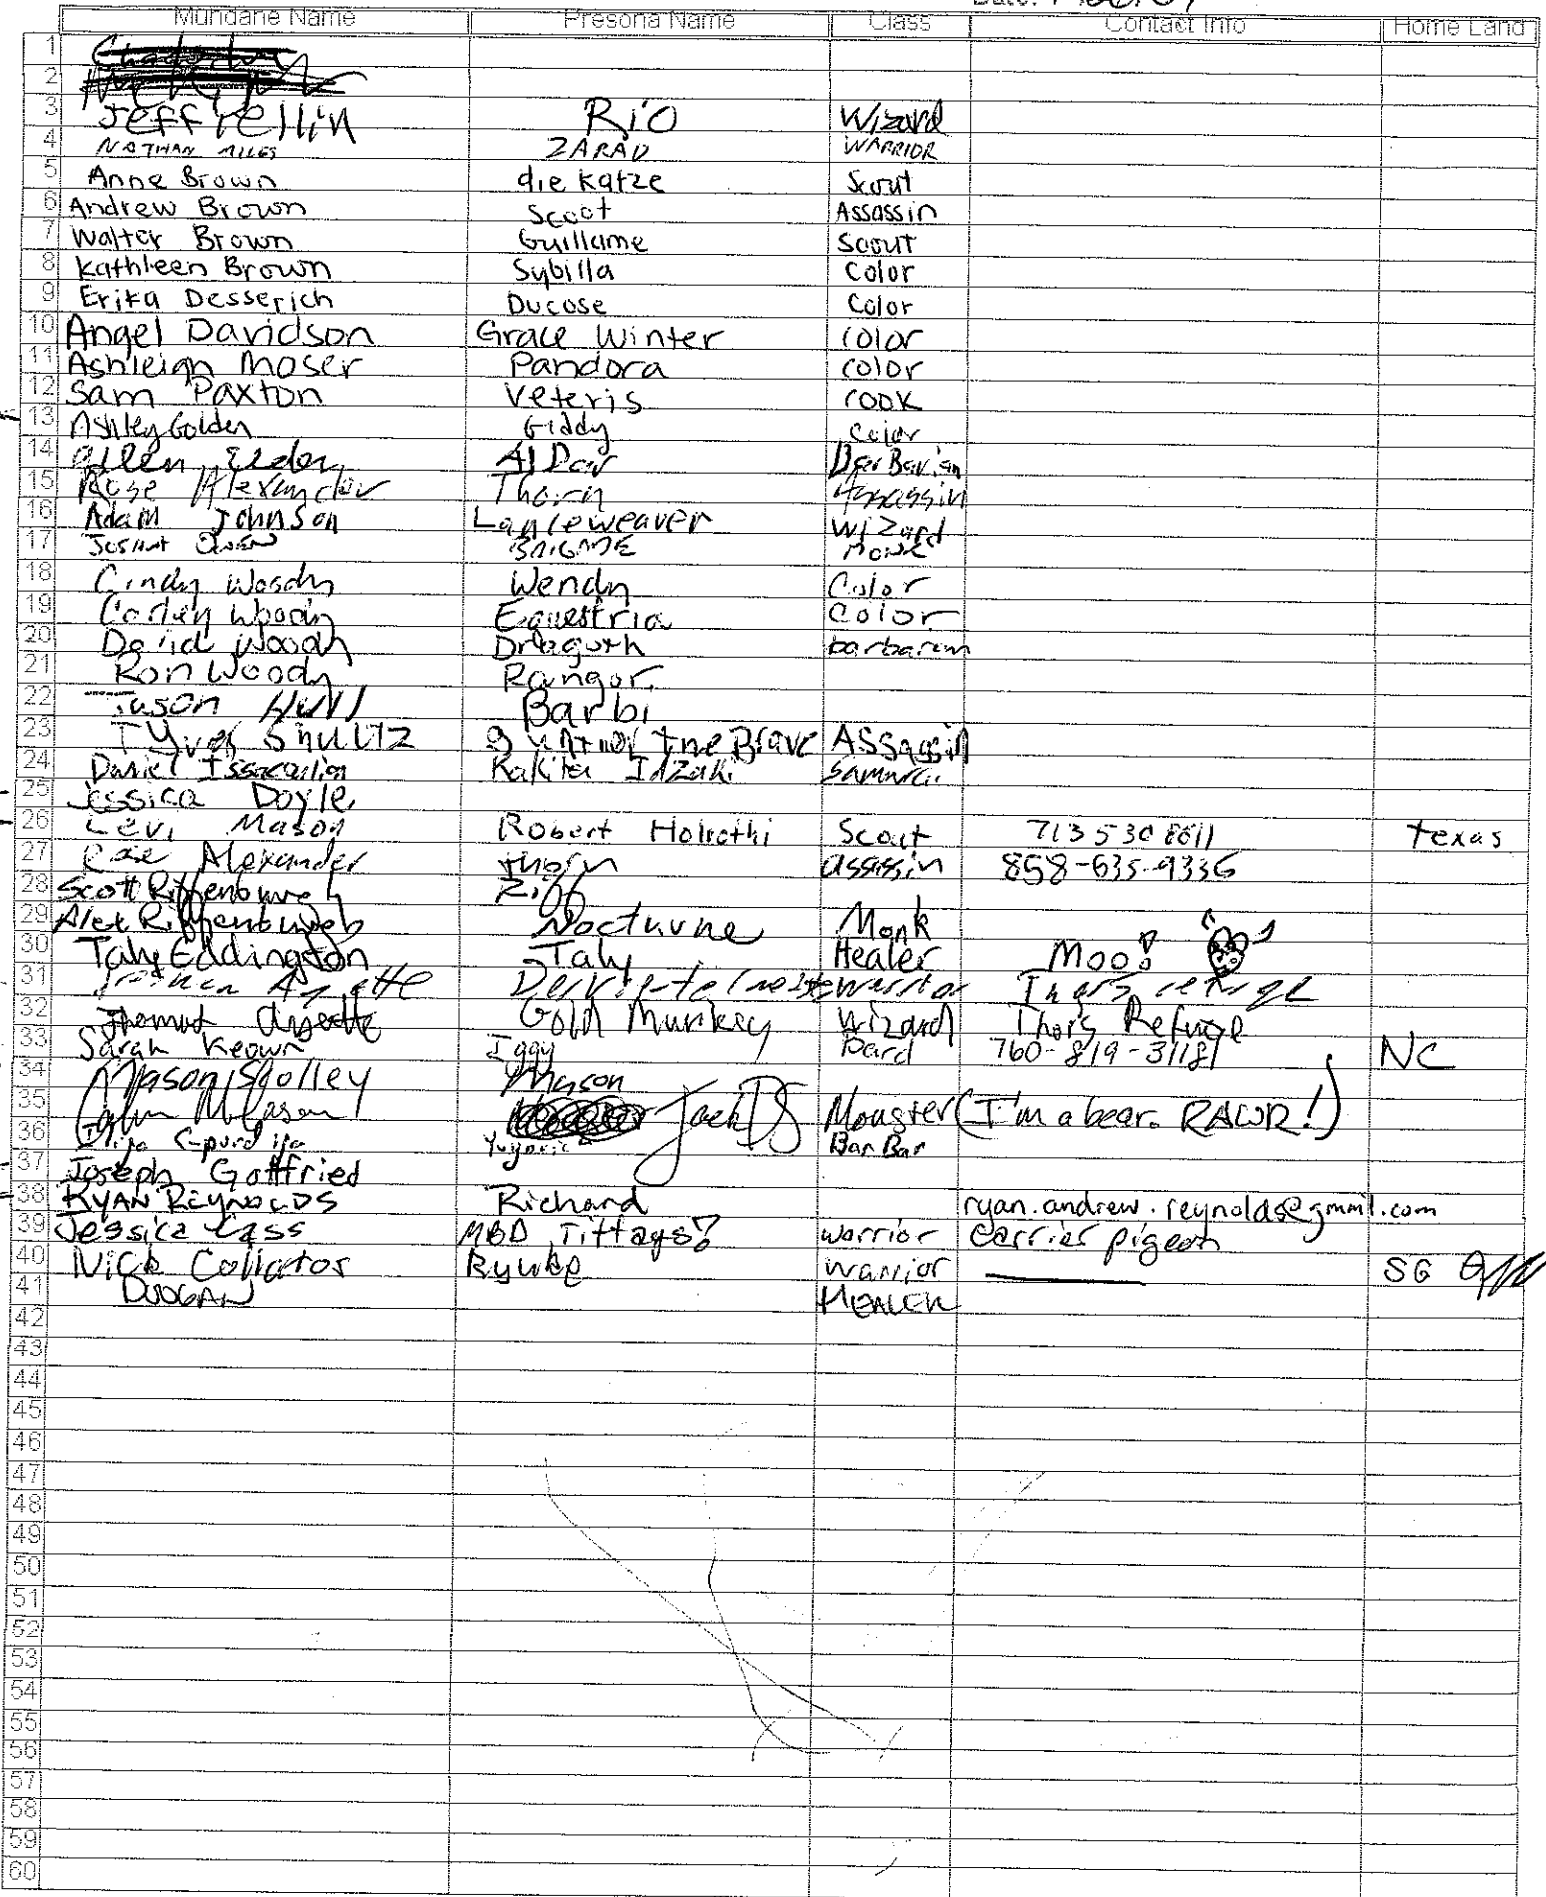 Date:
Mundane Name Presona Name Class Contact Info Home Land
1
2
3 Jeff Rio Wizard
4 NATHAN MILES ZARAD WARRIOR
5 Anne Brown die Katze Scout
6 Andrew Brown Scoot Assassin
7 Walter Brown Guillame Scout
8 Kathleen Brown Sybilla Color
9 Erika Desserich Ducose Color
10 Angel Davidson Grace Winter Color
11 Ashleigh Moser Pandora Color
12 Sam Paxton Veteris Cook
13 Ashley Golden Giddy Color
14 Allen Al Dar BarBarian
15 Rose Alexander Thorn Assassin
16 Adam Johnson Lanceweaver Wizard
17 OWEN BRIGADE MONK
18 Cindy Woody Wendy Color
19 Woody Equestria Color
20 David Woody
21 Ron Woody Rangor
22 Jason Barbi
23 Shultz the Brave Assassin
24 Daniel Kakita Samurai
25 Jessica Doyle
26 Levi Mason Robert Scout Texas
27 Rose Alexander thorn assassin 858-635-9336
28 Scott Riffenburgh Riff
29 Alex Riffenburgh Nocturne Monk
30 Taly Eddington Taly Healer Moo!
31 warrior Thors refuge
32 Gold Munkey Wizard Thors Refuge
33 Sarah Keown Iggy Bard 760-819-3118 NC
34 Mason Mason
35 Jack Monster (I'm a bear. RAWR!)
36 BarBar
37 Joseph Gottfried
38 RYAN REYNOLDS Richard ryan.andrew.reynolds@gmail.com
39 Jessica Cass MBD Tittays? warrior carrier pigeon
40 Nick warrior SG
41 HEALER
42
43
44
45
46
47
48
49
50
51
52
53
54
55
56
57
58
59
60